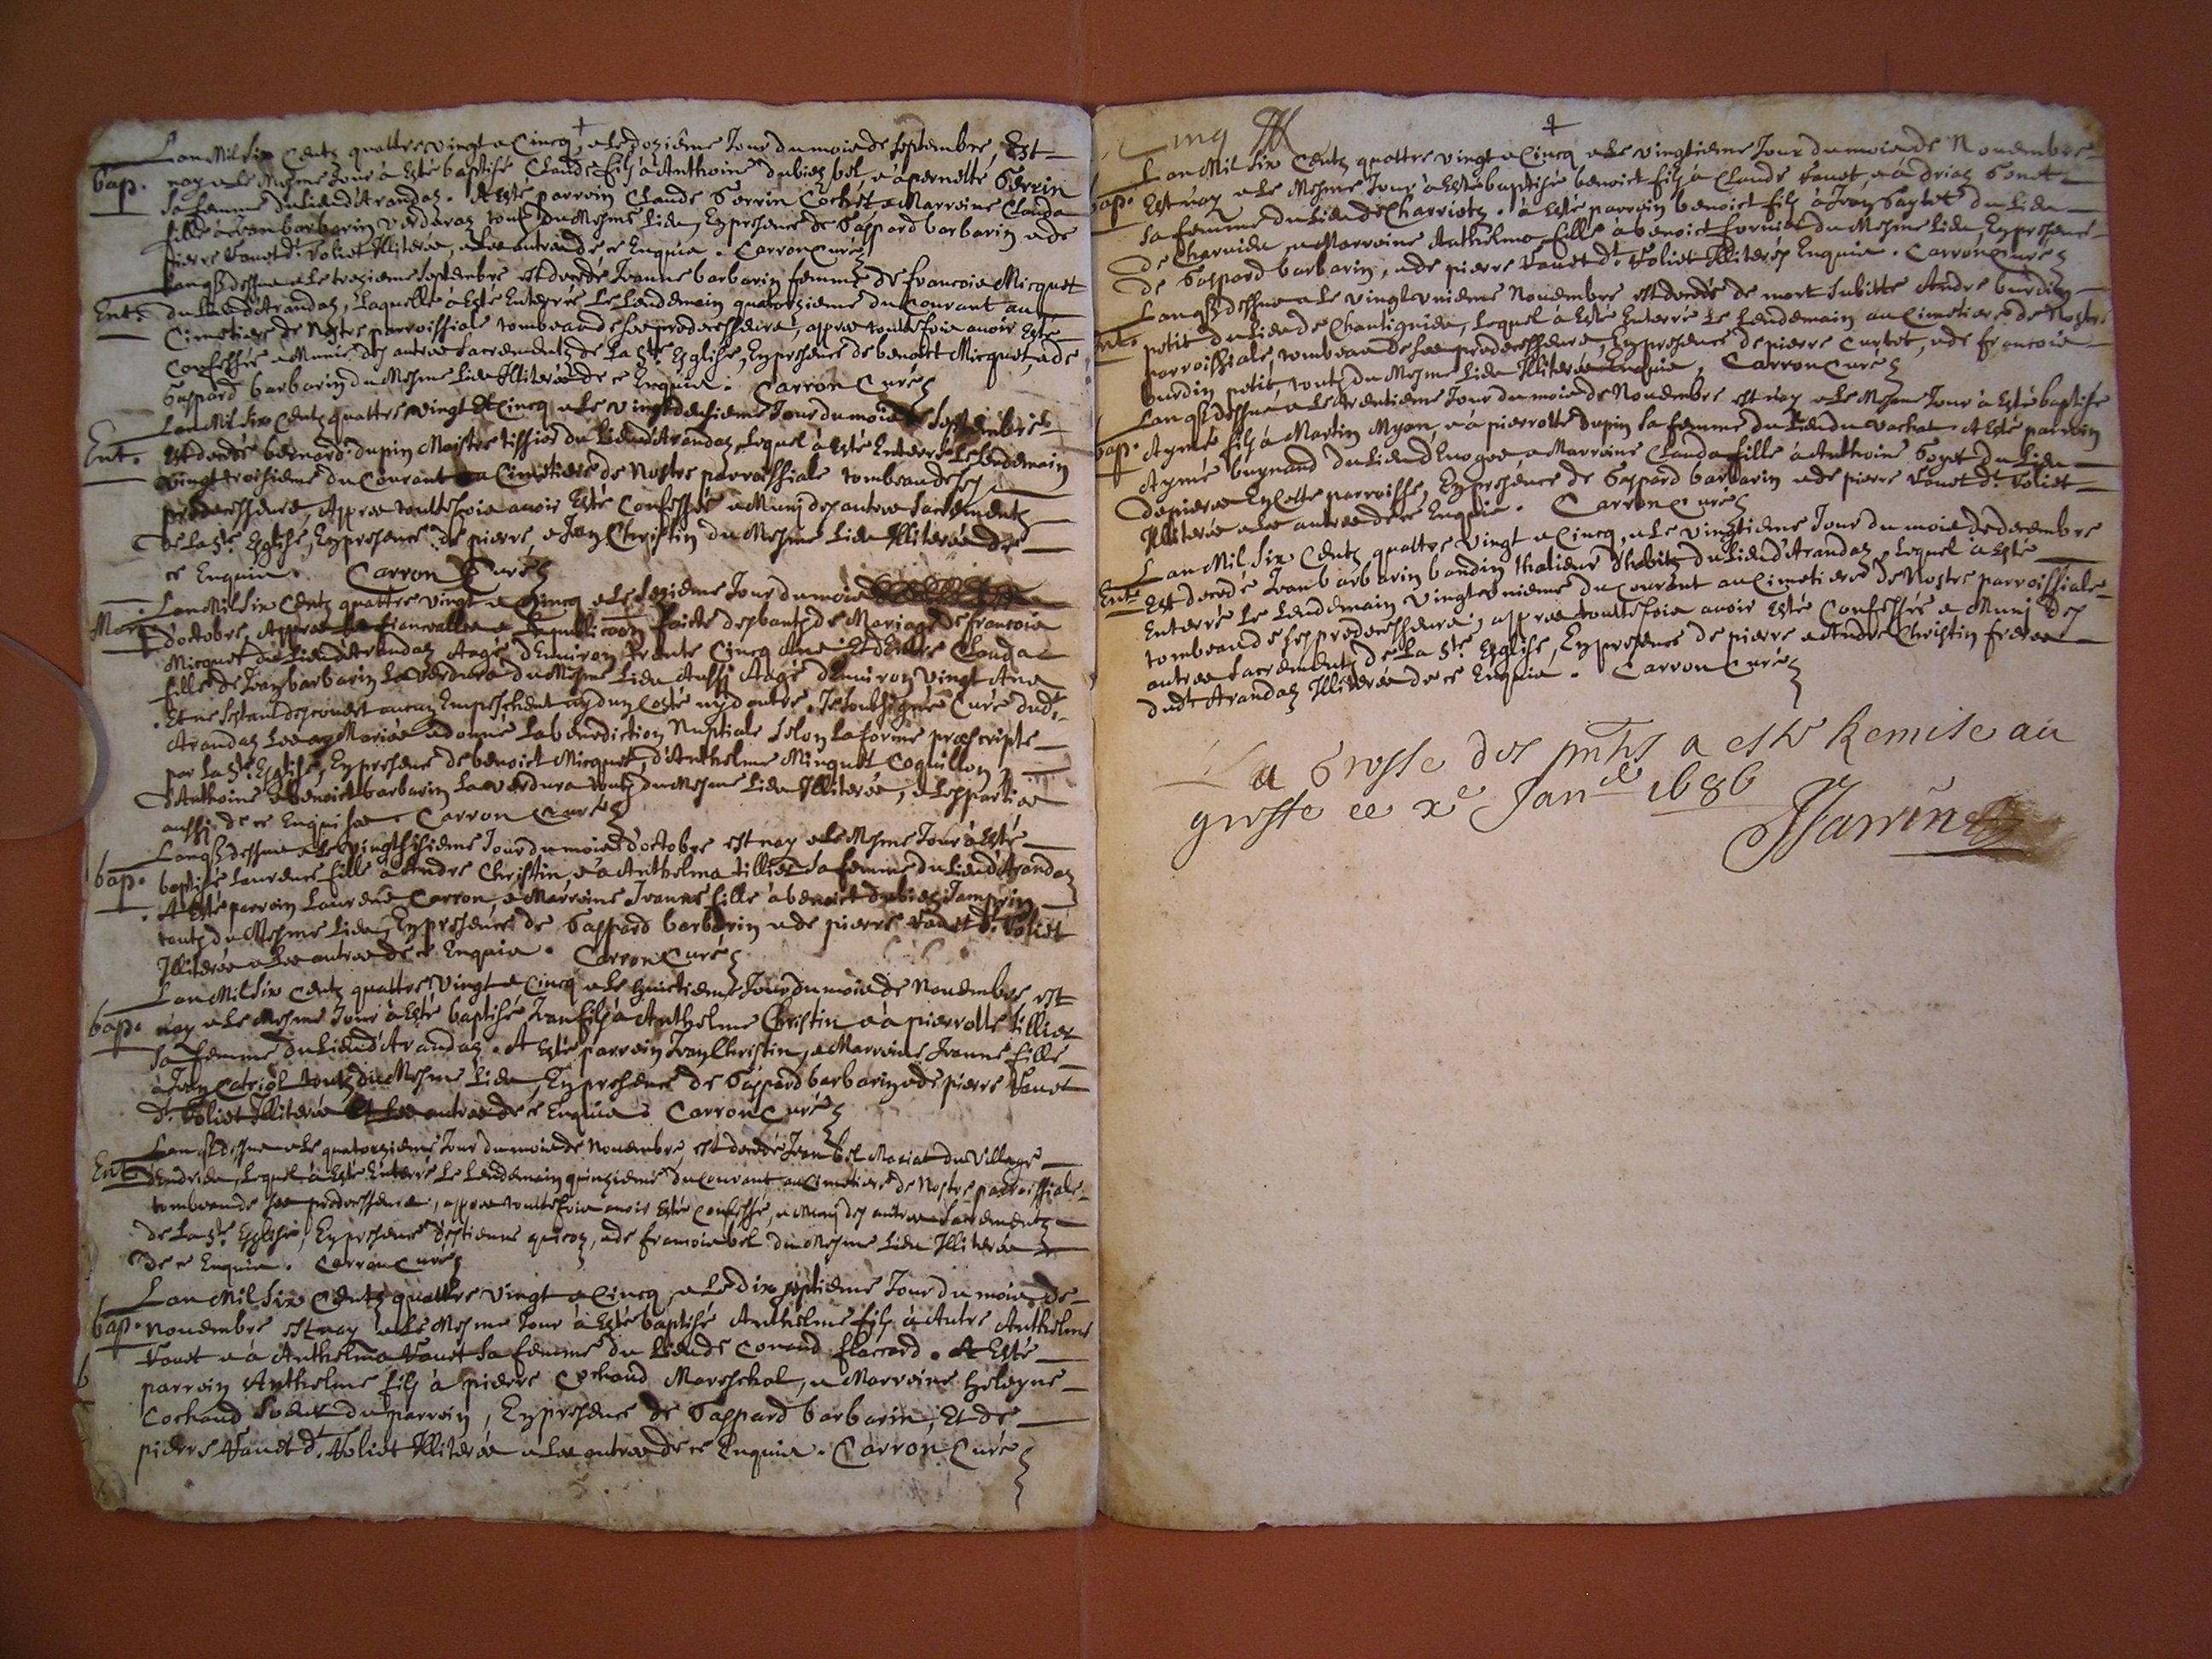 Lan Mil Six Centz quattre vingt e Cincq, e Le doziême Jour du mois de septembre, Est
bap. nay e Le Mesme Jour à Esté baptisé Claude filz à Anthoine dubiez bel, e a pernette Gerrin
sa femme du Lieu d'Arandaz. A Esté parroin Claude Gerrin Cochet e Marroine Clauda
fille à Jean barbarin Verduraz toutz du Mesme Lieu, En presence de Gaspard barbarin e de
pierre Vanet d.t Voliet Illiterés, e Les autres de ce Enquis. Carron Curé
Lan q.l dessus e Le trezieme septembre est decedé Jeanne barbarin femme de francois Micquet
Ent. du Lieu d'Arandaz, Laquelle à Esté Enterrée Le Lendemain quatorzieme du Courant au
Cimetiere de Nostre parroissiale tombeau de ses predecesseurs, appres toutesfois avoir Esté
Confessée e Munie des autres Sacrementz de La S.te Esglise, En presence de benoict Micquet, e de
Gaspard barbarin du Mesme Lieu Illiterés de ce Enquis. Carron Curé
Lan Mil Six Centz quattre vingt Et Cincq e Le vingt deusieme Jour du mois de septembre
Ent. est decedé bernard dupin Maistre tissier du Lieu d'Arandaz, Lequel à Esté Enterré Le Lendemain
vingt troisieme du Courant au Cimetiere de Nostre parroissiale tombeau de ses
predecesseurs, Appres toutesfois avoir Esté Confessé e Muni des autres Sacrementz
de La S.te Esglise, En presence de pierre, e Jean Christin du Mesme Lieu Illiterés de
ce Enquis. Carron Curé
Lan Mil Six Centz quattre vingt e Cincq e Le sezieme Jour du mois
Mar. d'octobre, Appres les fiancailles e La publicaon faicte des bantz de Mariage de francois
Micquet du Lieu d'Arandaz Aagé d'Environ trante Cincq Ans Et d'Entre Clauda
fille de Jean barbarin La verdura du Mesme Lieu Aussi Aagé d'Environ vingt Ans
Et ne sestant descouvert aucun Empeschement ny d'un Costé ny d'autre. Je soubsigné Curé dud.t
Arandaz Les ay Mariés e donné La benediction Nuptiale selon La forme prescripte
par La S.te Esglise, En presence de benoict Micquet, d'Anthelme Minguet Coquillon,
d'Anthoine e benoict barbarin La verdura toutz du Mesme Lieu Illiterés, e Les parties
aussi de ce Enquises. Carron Curé
Lan q.l dessus e Le vingt sisieme Jour du mois d'octobre est nay e Le Mesme Jour à Esté
bap. baptisé Laurence fille à Andre Christin, e a Anthelma tillier sa femme du Lieu d'Arandaz
A Esté parroin Laurend Carron, e Marroine Jeanne fille à benoict dubiez Jamprin
toutz du Mesme Lieu, En presence de Gaspard barbarin e de pierre Vanet d.t Voliet
Illiterés e Les autres de ce Enquis. Carron Curé
Lan Mil Six Centz quattre vingt e Cincq e Le huictieme Jour du mois de Novembre, est
bap. nay e Le Mesme Jour à Esté baptisé Jean filz à Anthelme Christin e à pierrotte tillier
sa femme du Lieu d'Arandaz. A Esté parroin Jean Christin, e Marroine Jeanne fille
à Jean toutz du Mesme Lieu, En presence de Gaspard barbarin e de pierre Vanet
d.t Voliet Illiterés Et Les autres de ce Enquis. Carron Curé
Lan q.l dessus e Le quatorzieme Jour du mois de Novembre, est decedé Jean bel Mariat du Village
Ent. Lequel à Esté Enterré Le Lendemain quinzieme du Courant au Cimetiere de Nostre parroissiale
tombeau de ses predecesseurs, appres toutesfois avoir Esté Confessé, e Muni des autres Sacrementz
de La S.te Esglise, En presence d'Estienne quicoz, e de francois bel du Mesme Lieu Illiterés
de ce Enquis. Carron Curé
Lan Mil Six Centz quattre vingt e Cincq, e Le dix septieme Jour du mois de
bap. Novembre est nay e Le Mesme Jour à Esté baptisé Anthelme filz à Autre Anthelme
Vanet e à Anthelma Vanet sa femme du Lieu de Conand flaccard. A Esté
parroin Anthelme filz à pierre Cochaud Mareschal, e Marroine
Cochaud soeur du parroin, En presence de Gaspard barbarin, Et de
pierre Vanet d.t Voliet Illiterés e Les autres de ce Enquis. Carron Curé
Cinq
Lan Mil Six Centz quattre vingt e Cincq e Le vingtieme Jour du mois de Novembre
bap. Est nay e Le Mesme Jour à Esté baptisé benoict filz à Claude Vanet, e à driaz Gonet
sa femme du Lieu de Charviotz. à Esté parroin benoict filz à Jean Gaylet du Lieu
de Charvieu, e Marroine Anthelma fille à benoict fornier du Mesme Lieu, En presence
de Gaspard barbarin, e de pierre Vanet d.t Voliet Illiterés Enquis. Carron Curé
Lan q.l dessus e Le vingt unieme Novembre est decedé de mort subitte Andre burdin
Ent. petit du Lieu de Chantignieu, Lequel à Esté Enterré Le Lendemain au Cimetiere de Nostre
parroissiale, tombeau de ses predecesseurs, En presence de pierre Curtet, e de francois
burdin petit toutz du Mesme Lieu Illiterés Enquis. Carron Curé
Lan q.l dessus e Le trentieme Jour du mois de Novembre est nay e Le Mesme Jour à Esté baptisé
bap. Aymé filz à Martin Myon, e à pierrotte dupin sa femme du Lieu du Vachat. A Esté parroin
Aymé buynand du Lieu d'Enoges e Marroine Clauda fille à Anthoine Goyet du Lieu
de pieres En Cette parroisse, En presence de Gaspard barbarin e de pierre Vanet d.t Voliet
Illiterés e Les autres de ce Enquis. Carron Curé
Lan Mil Six Centz quattre vingt e Cincq, e Le vingtieme Jour du mois de decembre
Ent. Est decedé Jean barbarin bandin thalieur d'habitz du Lieu d'Arandaz, Lequel à Esté
Enterré Le Lendemain vingt unieme du Courant au Cimetiere de Nostre parroissiale
tombeau de ses predecesseurs, appres toutesfois avoir Esté Confessé e Muni des
autres Sacrementz de La S.te Esglise, En presence de pierre e Andre Christin freres
dud.t Arandaz Illiterés de ce Enquis. Carron Curé
La Grosse des pnts a esté Remise au
greffe ce xe Janer 1686